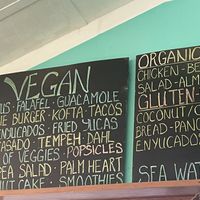 VEGAN
FALAFEL · GUACAMOLE
BURGER · KOFTA · TACOS
ENYUCADOS · FRIED YUCAS
ASADO · TEMPEH · DAHL
OF VEGGIES · POPSICLES
SALAD · PALM HEART
CAKE · SMOOTHIES
ORGANIC
CHICKEN · BE
SALAD · ALM
GLUTEN
COCONUT/C
BREAD · PAN
ENYUCADOS
SEA WA